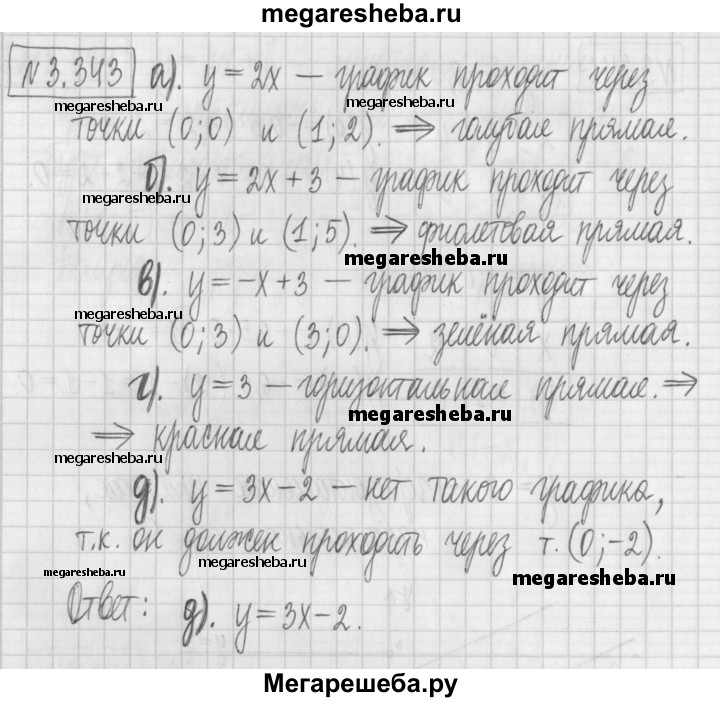 megaresheba.ru
N 3.343 а). y = 2x — график проходит через
megaresheba.ru megaresheba.ru
точки (0;0) и (1;2). ⇒ голубая прямая.
б). y = 2x + 3 — график проходит через
megaresheba.ru
точки (0;3) и (1;5). ⇒ фиолетовая прямая.
megaresheba.ru
в). y = -x + 3 — график проходит через
megaresheba.ru
точки (0;3) и (3;0). ⇒ зелёная прямая.
г). y = 3 — горизонтальная прямая. ⇒
megaresheba.ru
⇒ красная прямая.
megaresheba.ru
д). y = 3x - 2 — нет такого графика,
т.к. он должен проходить через т. (0;-2).
megaresheba.ru megaresheba.ru megaresheba.ru
Ответ: д). y = 3x - 2.
Мегарешеба.ру